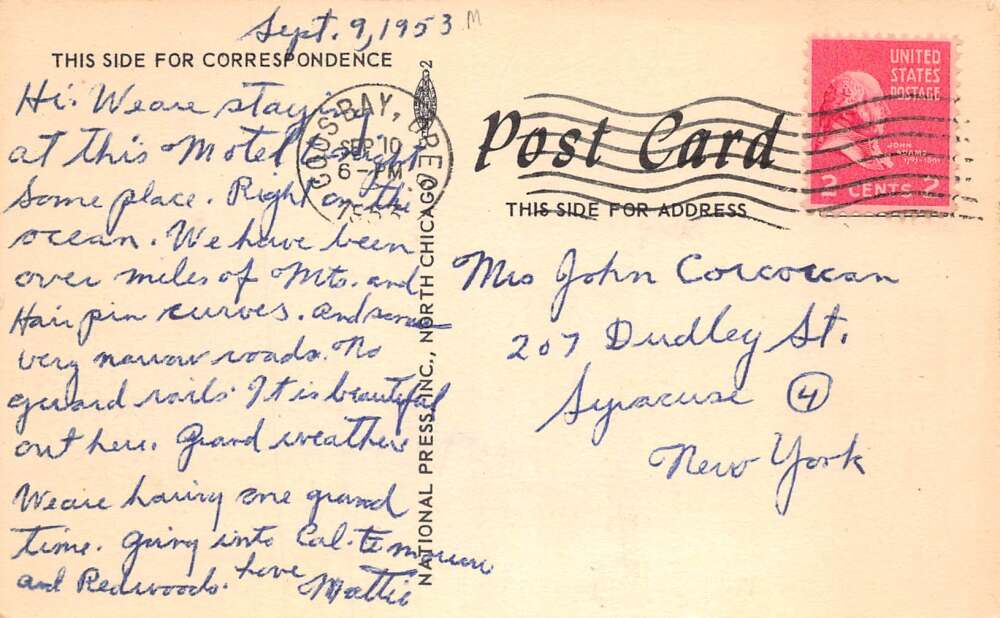 Sept. 9, 1953
M
THIS SIDE FOR CORRESPONDENCE
Hi. We are staying
at this Motel tonight
Some place. Right on the
ocean. We have been
over miles of Mts. and
Hair pin curves. and some
very narrow roads. No
guard rails. It is beautiful
out here. Grand weather
We are having one grand
time. going into Cal. to morrow
and Redwoods. Love Mattie
COOS BAY, OREG.
SEP 10
6-PM
1953
NATIONAL PRESS, INC., NORTH CHICAGO
2
Post Card
THIS SIDE FOR ADDRESS
UNITED
STATES
POSTAGE
JOHN
ADAMS
1797-1801
2 CENTS 2
Mrs John Corcoran
207 Dudley St.
Syracuse 4
New York